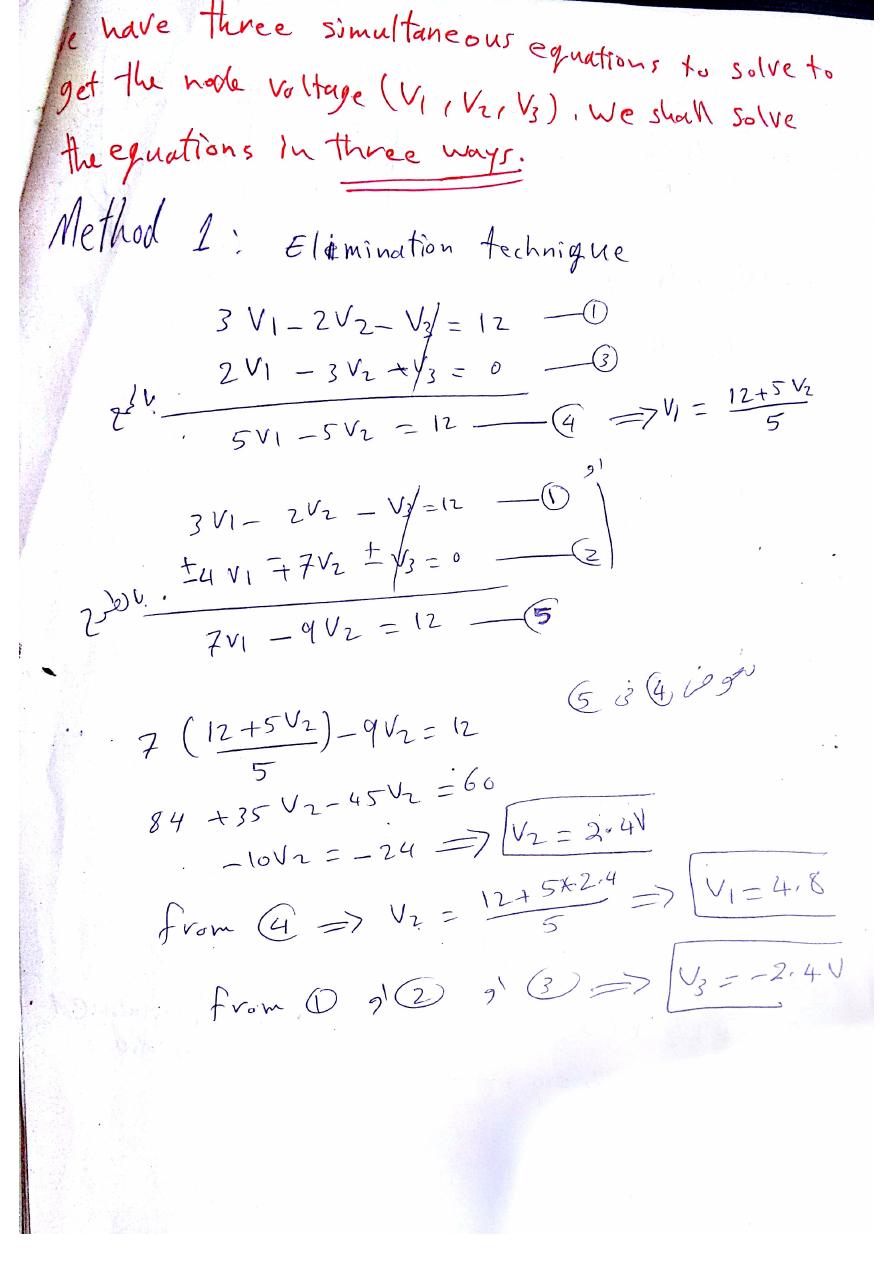 have three simultaneous equations to solve to
get the node voltage (V1, V2, V3). We shall solve
the equations in three ways.
Method 1: Elimination technique
3V1 - 2V2 - V3 = 12 —①
2V1 - 3V2 + V3 = 0 —③
بالجمع
5V1 - 5V2 = 12 —④ ⟹ V1 = (12+5V2)/5
او
3V1 - 2V2 - V3 = 12 —①
±4V1 ∓ 7V2 ± V3 = 0 —②
بالطرح
7V1 - 9V2 = 12 —⑤
نعوض ④ في ⑤
7 ((12+5V2)/5) - 9V2 = 12
84 + 35V2 - 45V2 = 60
-10V2 = -24 ⟹ V2 = 2.4V
from ④ ⟹ V2 = (12+5*2.4)/5 ⟹ V1 = 4.8
from ① او ② او ③ ⟹ V3 = -2.4V